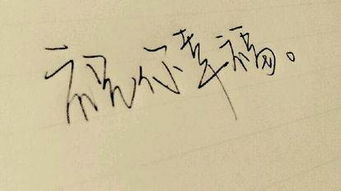 祝你幸福。